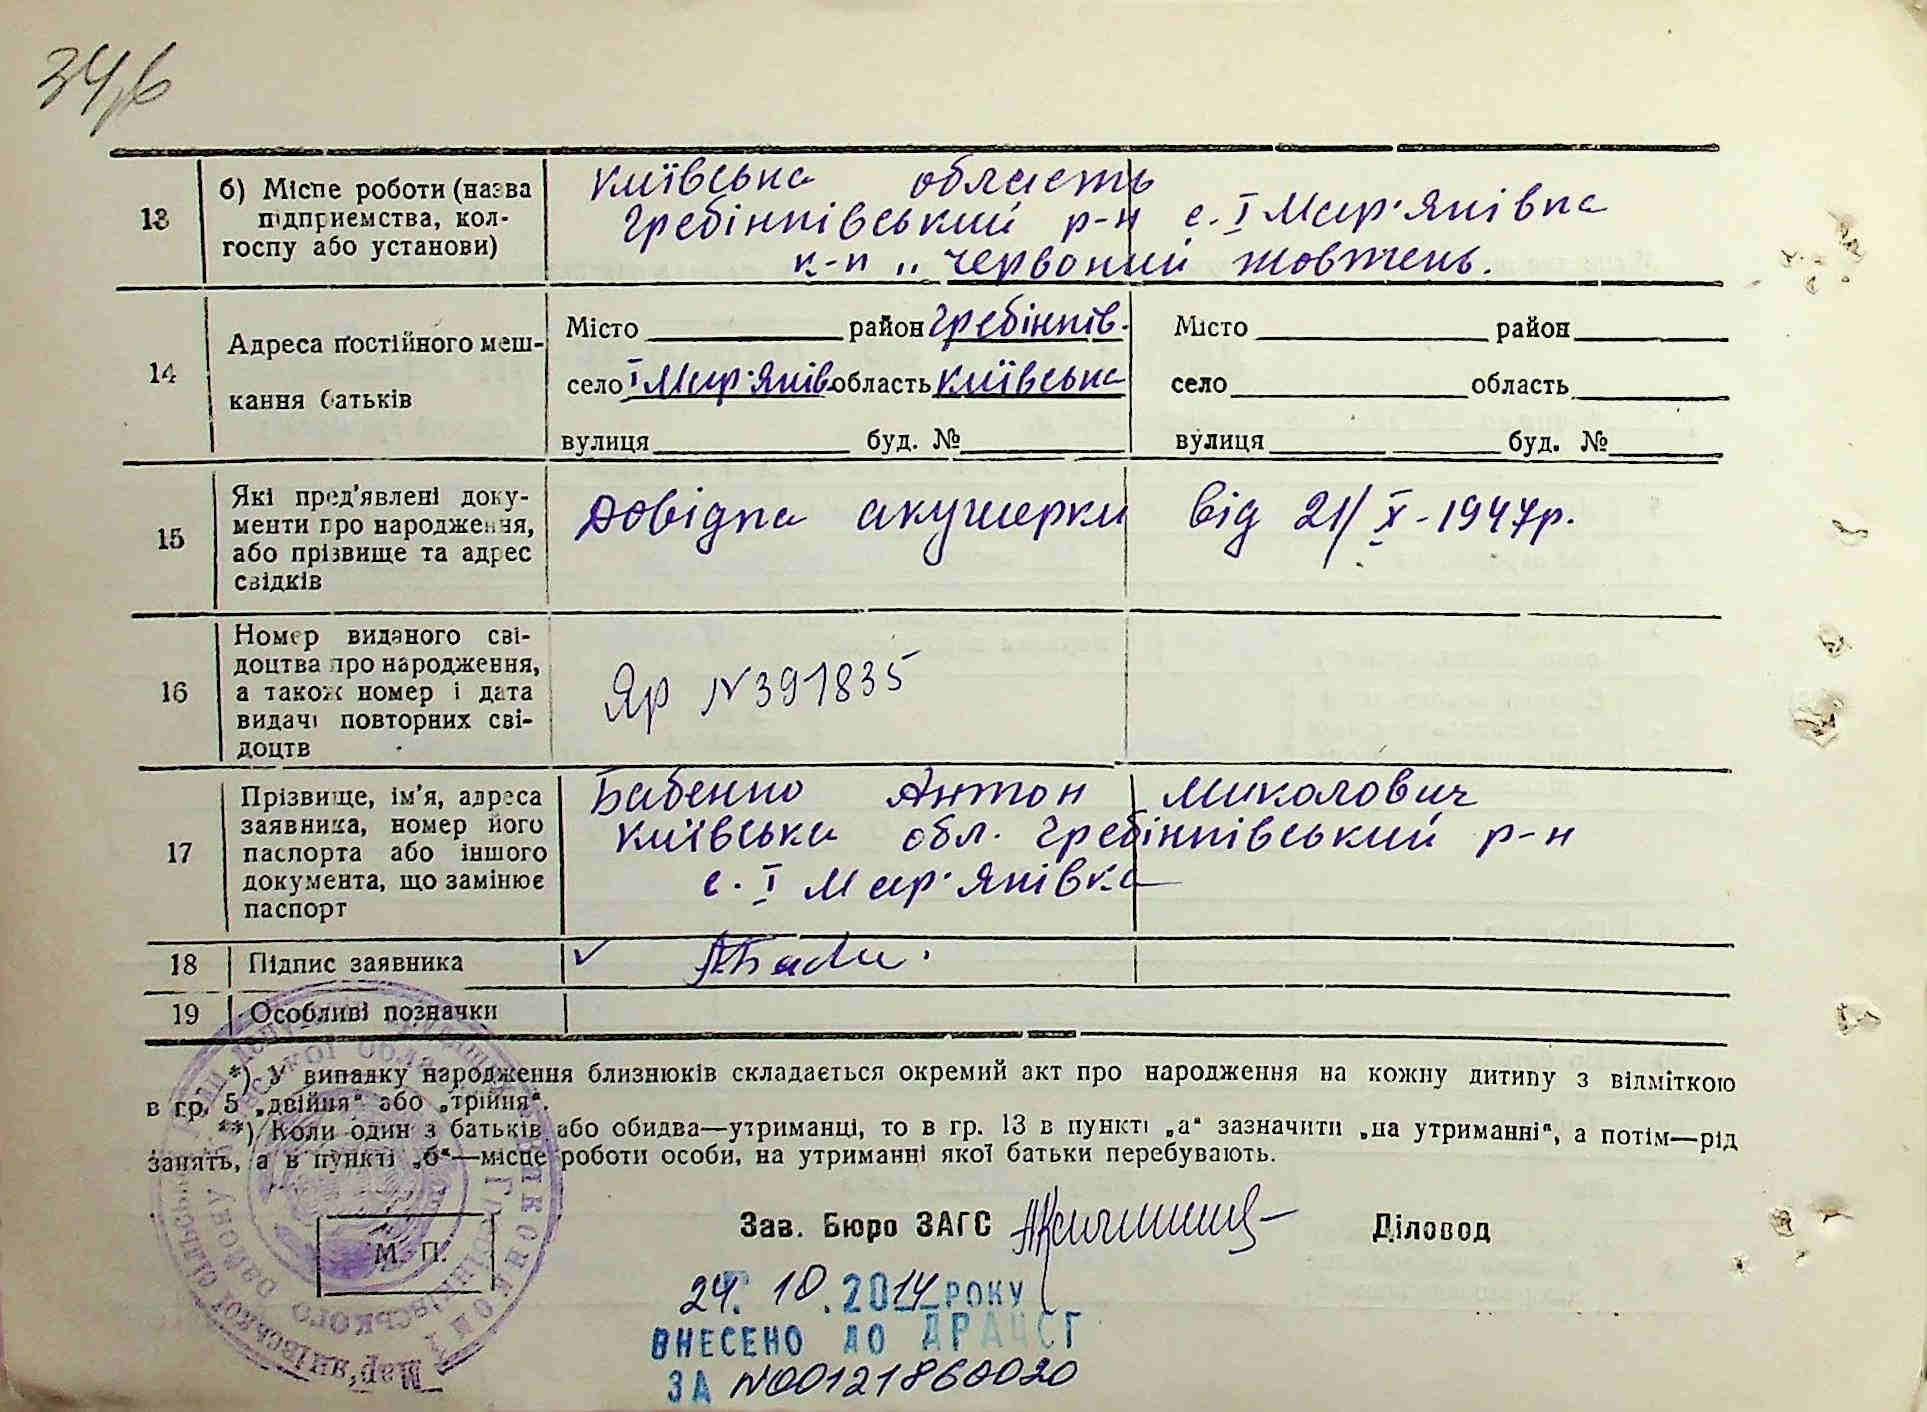 34,б
13
б) Місце роботи (назва
підприємства, кол-
госпу або установи)
Київська область
Гребінківський р-н с. І Мар'янівка
к-п „Червоний жовтень.
14
Адреса постійного меш-
кання батьків
Місто район Гребінків. Місто район
село І Мар'янів. область Київська село область
вулиця буд. № вулиця буд. №
15
Які пред'явлені доку-
менти про народження,
або прізвище та адрес
свідків
Довідка акушерки від 21/X-1947р.
16
Номер виданого сві-
доцтва про народження,
а також номер і дата
видачі повторних сві-
доцтв
Яр N391835
17
Прізвище, ім'я, адреса
заявника, номер його
паспорта або іншого
документа, що замінює
паспорт
Бабенко Антон Миколович
Київська обл. Гребінківський р-н
с. І Мар'янівка
18 Підпис заявника
19 Особливі позначки
*) У випадку народження близнюків складається окремий акт про народження на кожну дитину з відміткою
в гр. 5 „двійня" або „трійня".
**) Коли один з батьків або обидва—утриманці, то в гр. 13 в пункті „а" зазначити „на утриманні", а потім—рід
занять, а в пункті „б"—місце роботи особи, на утриманні якої батьки перебувають.
Зав. Бюро ЗАГС Діловод
М. П.
24. 10. 2014 РОКУ
ВНЕСЕНО ДО ДРАЦСГ
ЗА N00121860020